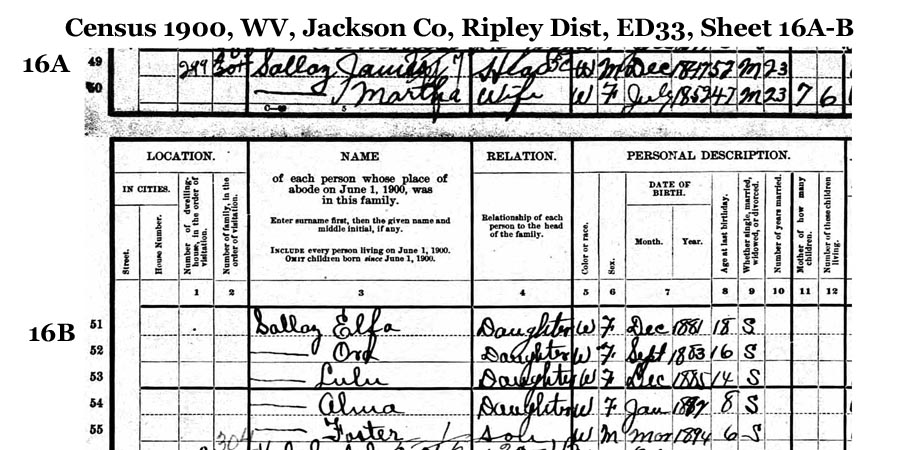 Census 1900, WV, Jackson Co, Ripley Dist, ED33, Sheet 16A-B
16A
49 299 304 Sallaz James Head W M Dec 1847 52 M 23
50 Martha Wife W F July 1852 47 M 23 7 6
LOCATION. NAME RELATION. PERSONAL DESCRIPTION.
IN CITIES.
Street.
House Number.
Number of dwelling-house, in the order of visitation.
Number of family, in the order of visitation.
of each person whose place of
abode on June 1, 1900, was
in this family.
Enter surname first, then the given name and
middle initial, if any.
INCLUDE every person living on June 1, 1900.
OMIT children born since June 1, 1900.
Relationship of each
person to the head
of the family.
Color or race.
Sex.
DATE OF
BIRTH.
Month. Year.
Age at last birthday.
Whether single, married, widowed, or divorced.
Number of years married.
Mother of how many children.
Number of these children living.
1 2 3 4 5 6 7 8 9 10 11 12
16B
51 Sallaz Elfa Daughter W F Dec 1881 18 S
52 Ord Daughter W F Sept 1883 16 S
53 Lulu Daughter W F Dec 1885 14 S
54 Alma Daughter W F Jan 8 S
55 Foster Son W M Mar 1894 6 S
304